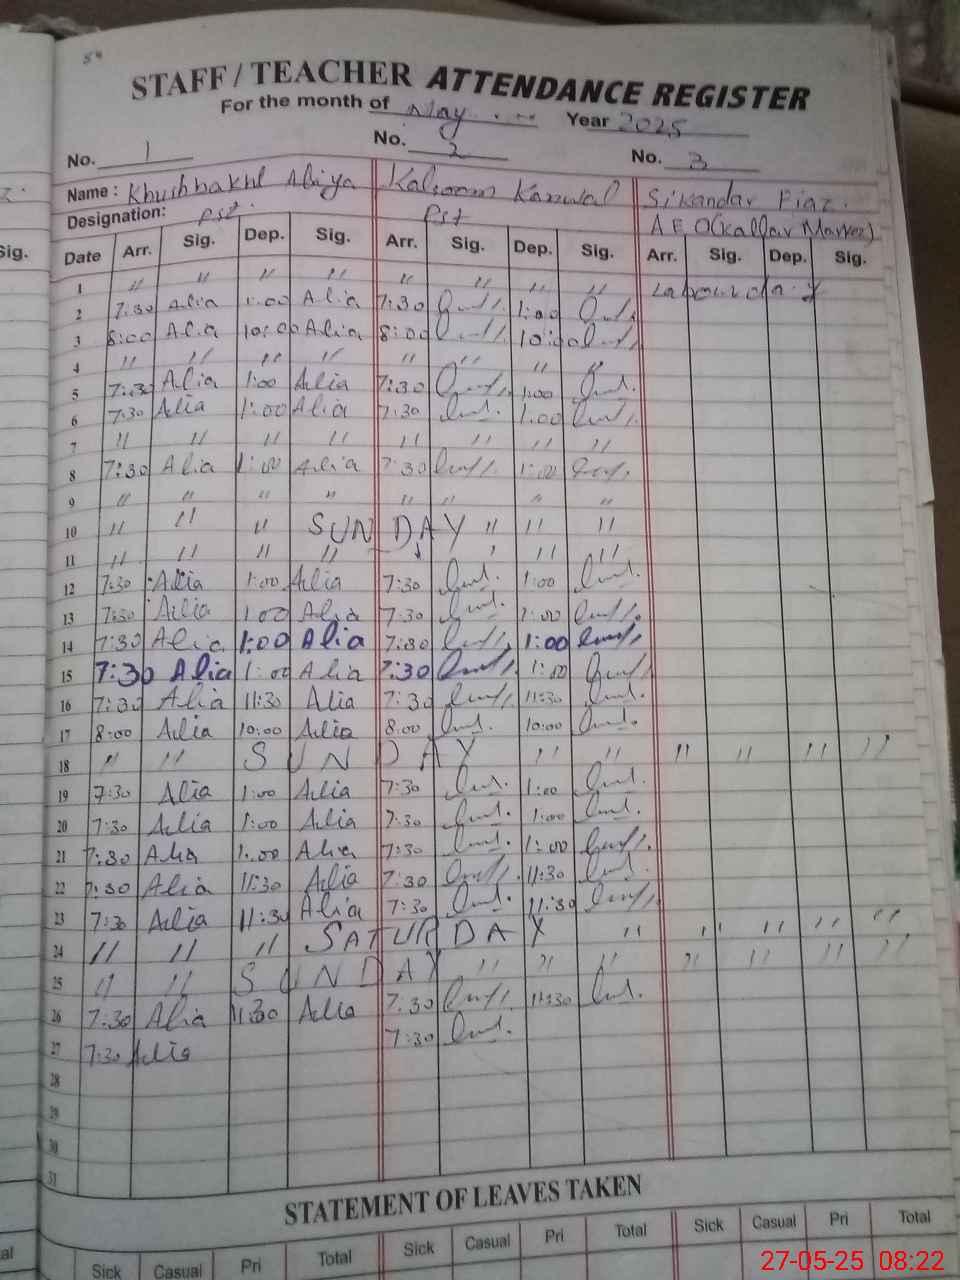 STAFF / TEACHER ATTENDANCE REGISTER
For the month of May Year 2025
No. 1 No. 2 No. 3
Name : Khushbakht Aliya Kalsoom Kanwal Sikandar Fiaz.
Designation: Pst. Pst A E O (Kallar Markez)
Date Arr. Sig. Dep. Sig. Arr. Sig. Dep. Sig. Arr. Sig. Dep. Sig.
1 " " " " " " " " Labour day
2 7:30 Alia 1:00 Alia 7:30 1:00
3 8:00 Alia 10:00 Alia 8:00 10:00
4 " " " " " " " "
5 7:30 Alia 1:00 Alia 7:30 1:00
6 7:30 Alia 1:00 Alia 7:30 1:00
7 " " " " " " " "
8 7:30 Alia 1:00 Alia 7:30 1:00
9 " " " " " " " "
10 " " " SUNDAY " " "
11 " " " " " " "
12 7:30 Alia 1:00 Alia 7:30 1:00
13 7:30 Alia 1:00 Alia 7:30 1:00
14 7:30 Alia 1:00 Alia 7:30 1:00
15 7:30 Alia 1:00 Alia 7:30 1:00
16 7:30 Alia 11:30 Alia 7:30 11:30
17 8:00 Alia 10:00 Alia 8:00 10:00
18 " " SUNDAY " " " " " "
19 7:30 Alia 1:00 Alia 7:30 1:00
20 7:30 Alia 1:00 Alia 7:30 1:00
21 7:30 Alia 1:00 Alia 7:30 1:00
22 7:30 Alia 11:30 Alia 7:30 11:30
23 7:30 Alia 11:30 Alia 7:30 11:30
24 " " " SATURDAY " " " " "
25 " " SUNDAY " " " " " " "
26 7:30 Alia 11:30 Alia 7:30 11:30
27 7:30 Alia 7:30
28
29
30
31
STATEMENT OF LEAVES TAKEN
Sick Casual Pri Total Sick Casual Pri Total Sick Casual Pri Total
27-05-25 08:22